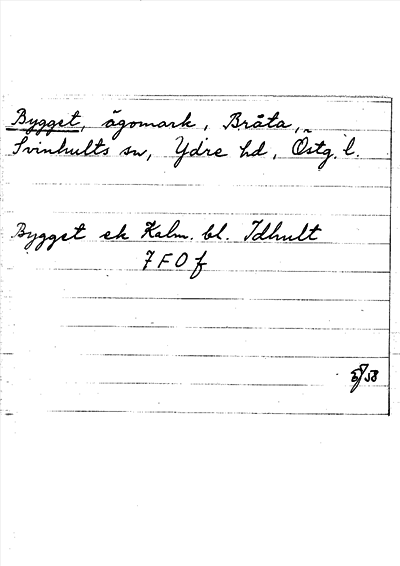 Bygget, ägomark, Bråta,
Svinhults sn, Ydre hd, Östg. l.
Bygget ek Kalm. bl. Idhult
7 F O f